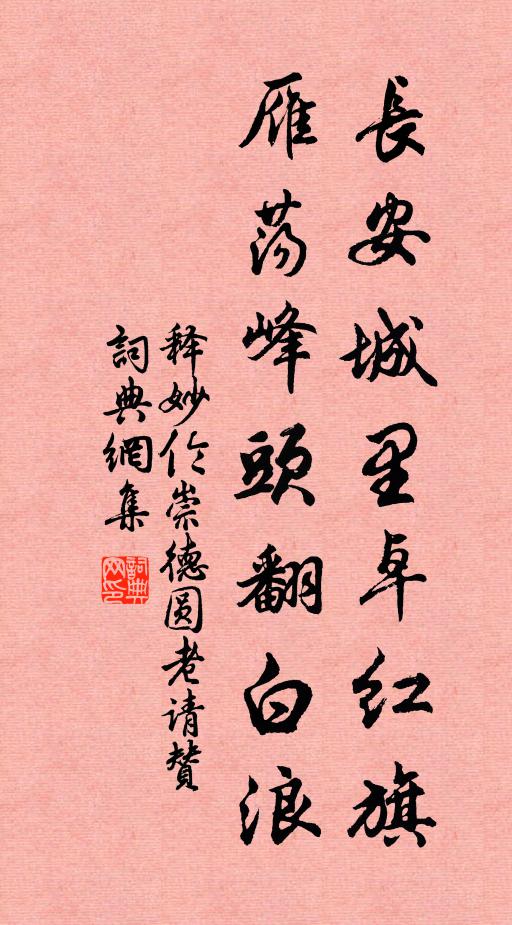 長安城里卓红旗
雁荡峰頭翻白浪
释妙伦崇德圆老请赞
詞典網集
詞典网印